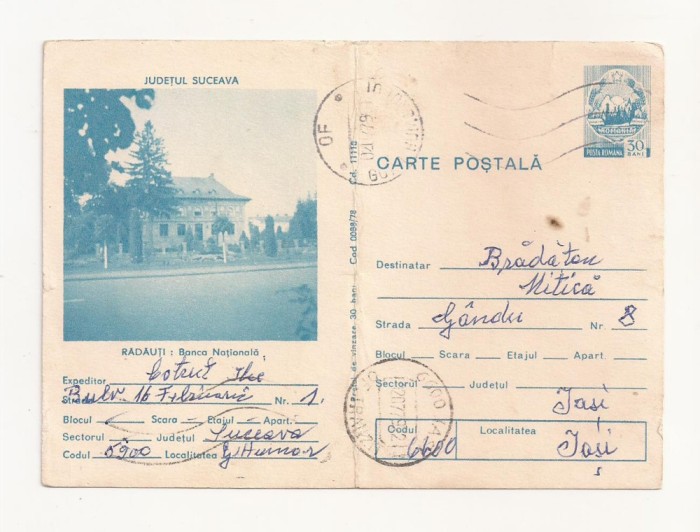 JUDEŢUL SUCEAVA
RĂDĂUŢI : Banca Naţională
Expeditor Cotruţ Ilie
Strada Bulv. 16 Februarie Nr. 1.
Blocul Scara Etajul Apart.
Sectorul Judeţul Suceava
Codul 5900 Localitatea G. Humor
Cod 0098/78 Cd. 11110
OF
POSTA ROMANA 30 BANI
CARTE POŞTALĂ
Destinatar Brădăţan
Mitică
Strada Gându Nr. 8
Blocul Scara Etajul Apart
Sectorul Judeţul Iaşi
Codul 6600 Localitatea Iaşi